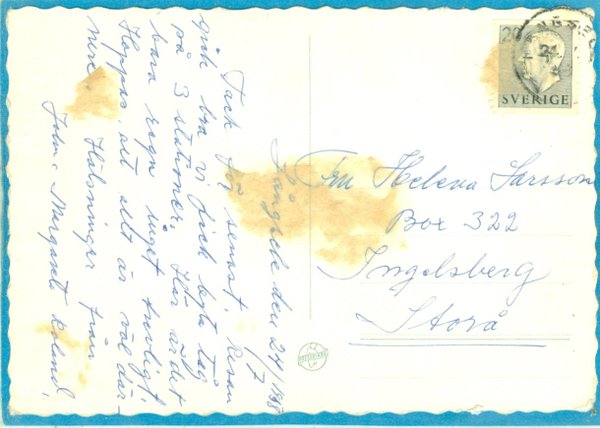 Långsele den 24/7 1958
Tack för senast. Resan
gick bra vi fick byta tåg
på 3 stationer. Här är det
bara regn inget trevligt
Hoppas att allt är väl där-
nere. Hälsningar från
John, Margaret
20
SVERIGE
LÅNGSELE
24
Fru Helena Larsson
Box 322
Ingelsberg
Storå